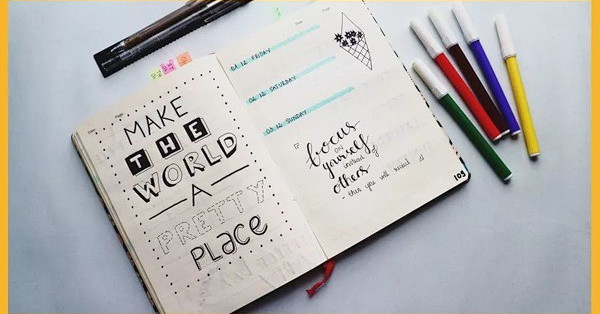 MAKE
THE
WORLD
A
PRETTY
PLACE
01. 12. FRIDAY
02. 12. SATURDAY
03. 12. SUNDAY
focus
on
yourself
instead of
others
- then you will